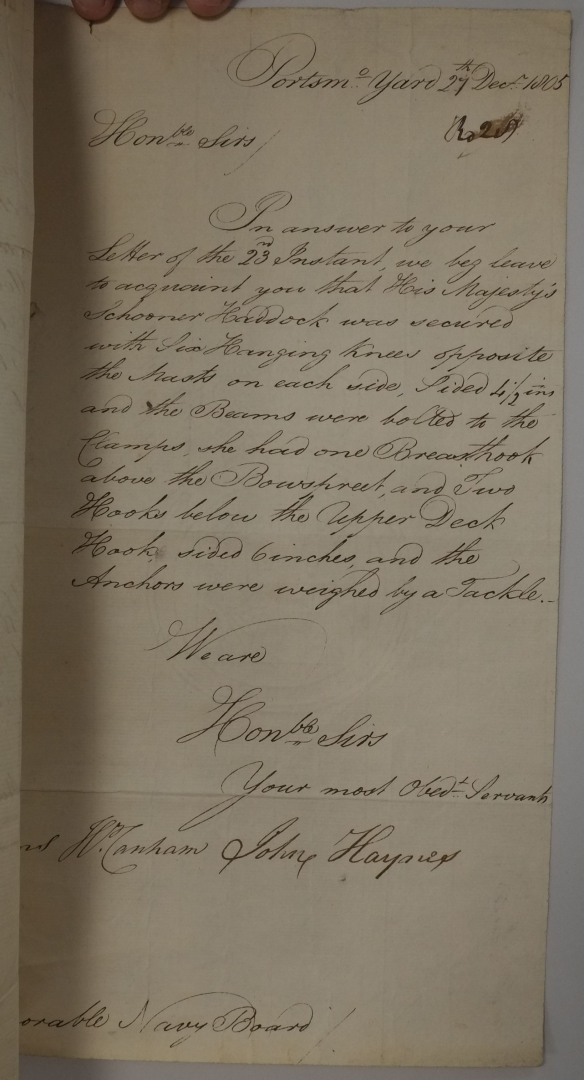 Portsmo Yard 27th Decr 1805
Honble Sirs/
In answer to your
Letter of the 23rd Instant, we beg leave
to acquaint you that His Majesty's
Schooner Haddock was secured
with Six Hanging Knees opposite
the Masts on each side, Sided 4 1/2 ins
and the Beams were bolted to the
Clamps, she had one Breasthook
above the Bowspreet, and Two
Hooks below the Upper Deck
Hook, sided 6 inches, and the
Anchors were weighed by a Tackle.-
We are
Honble Sirs
Your most Obedt Servants
Wm Canham John Haynes
orable Navy Board/